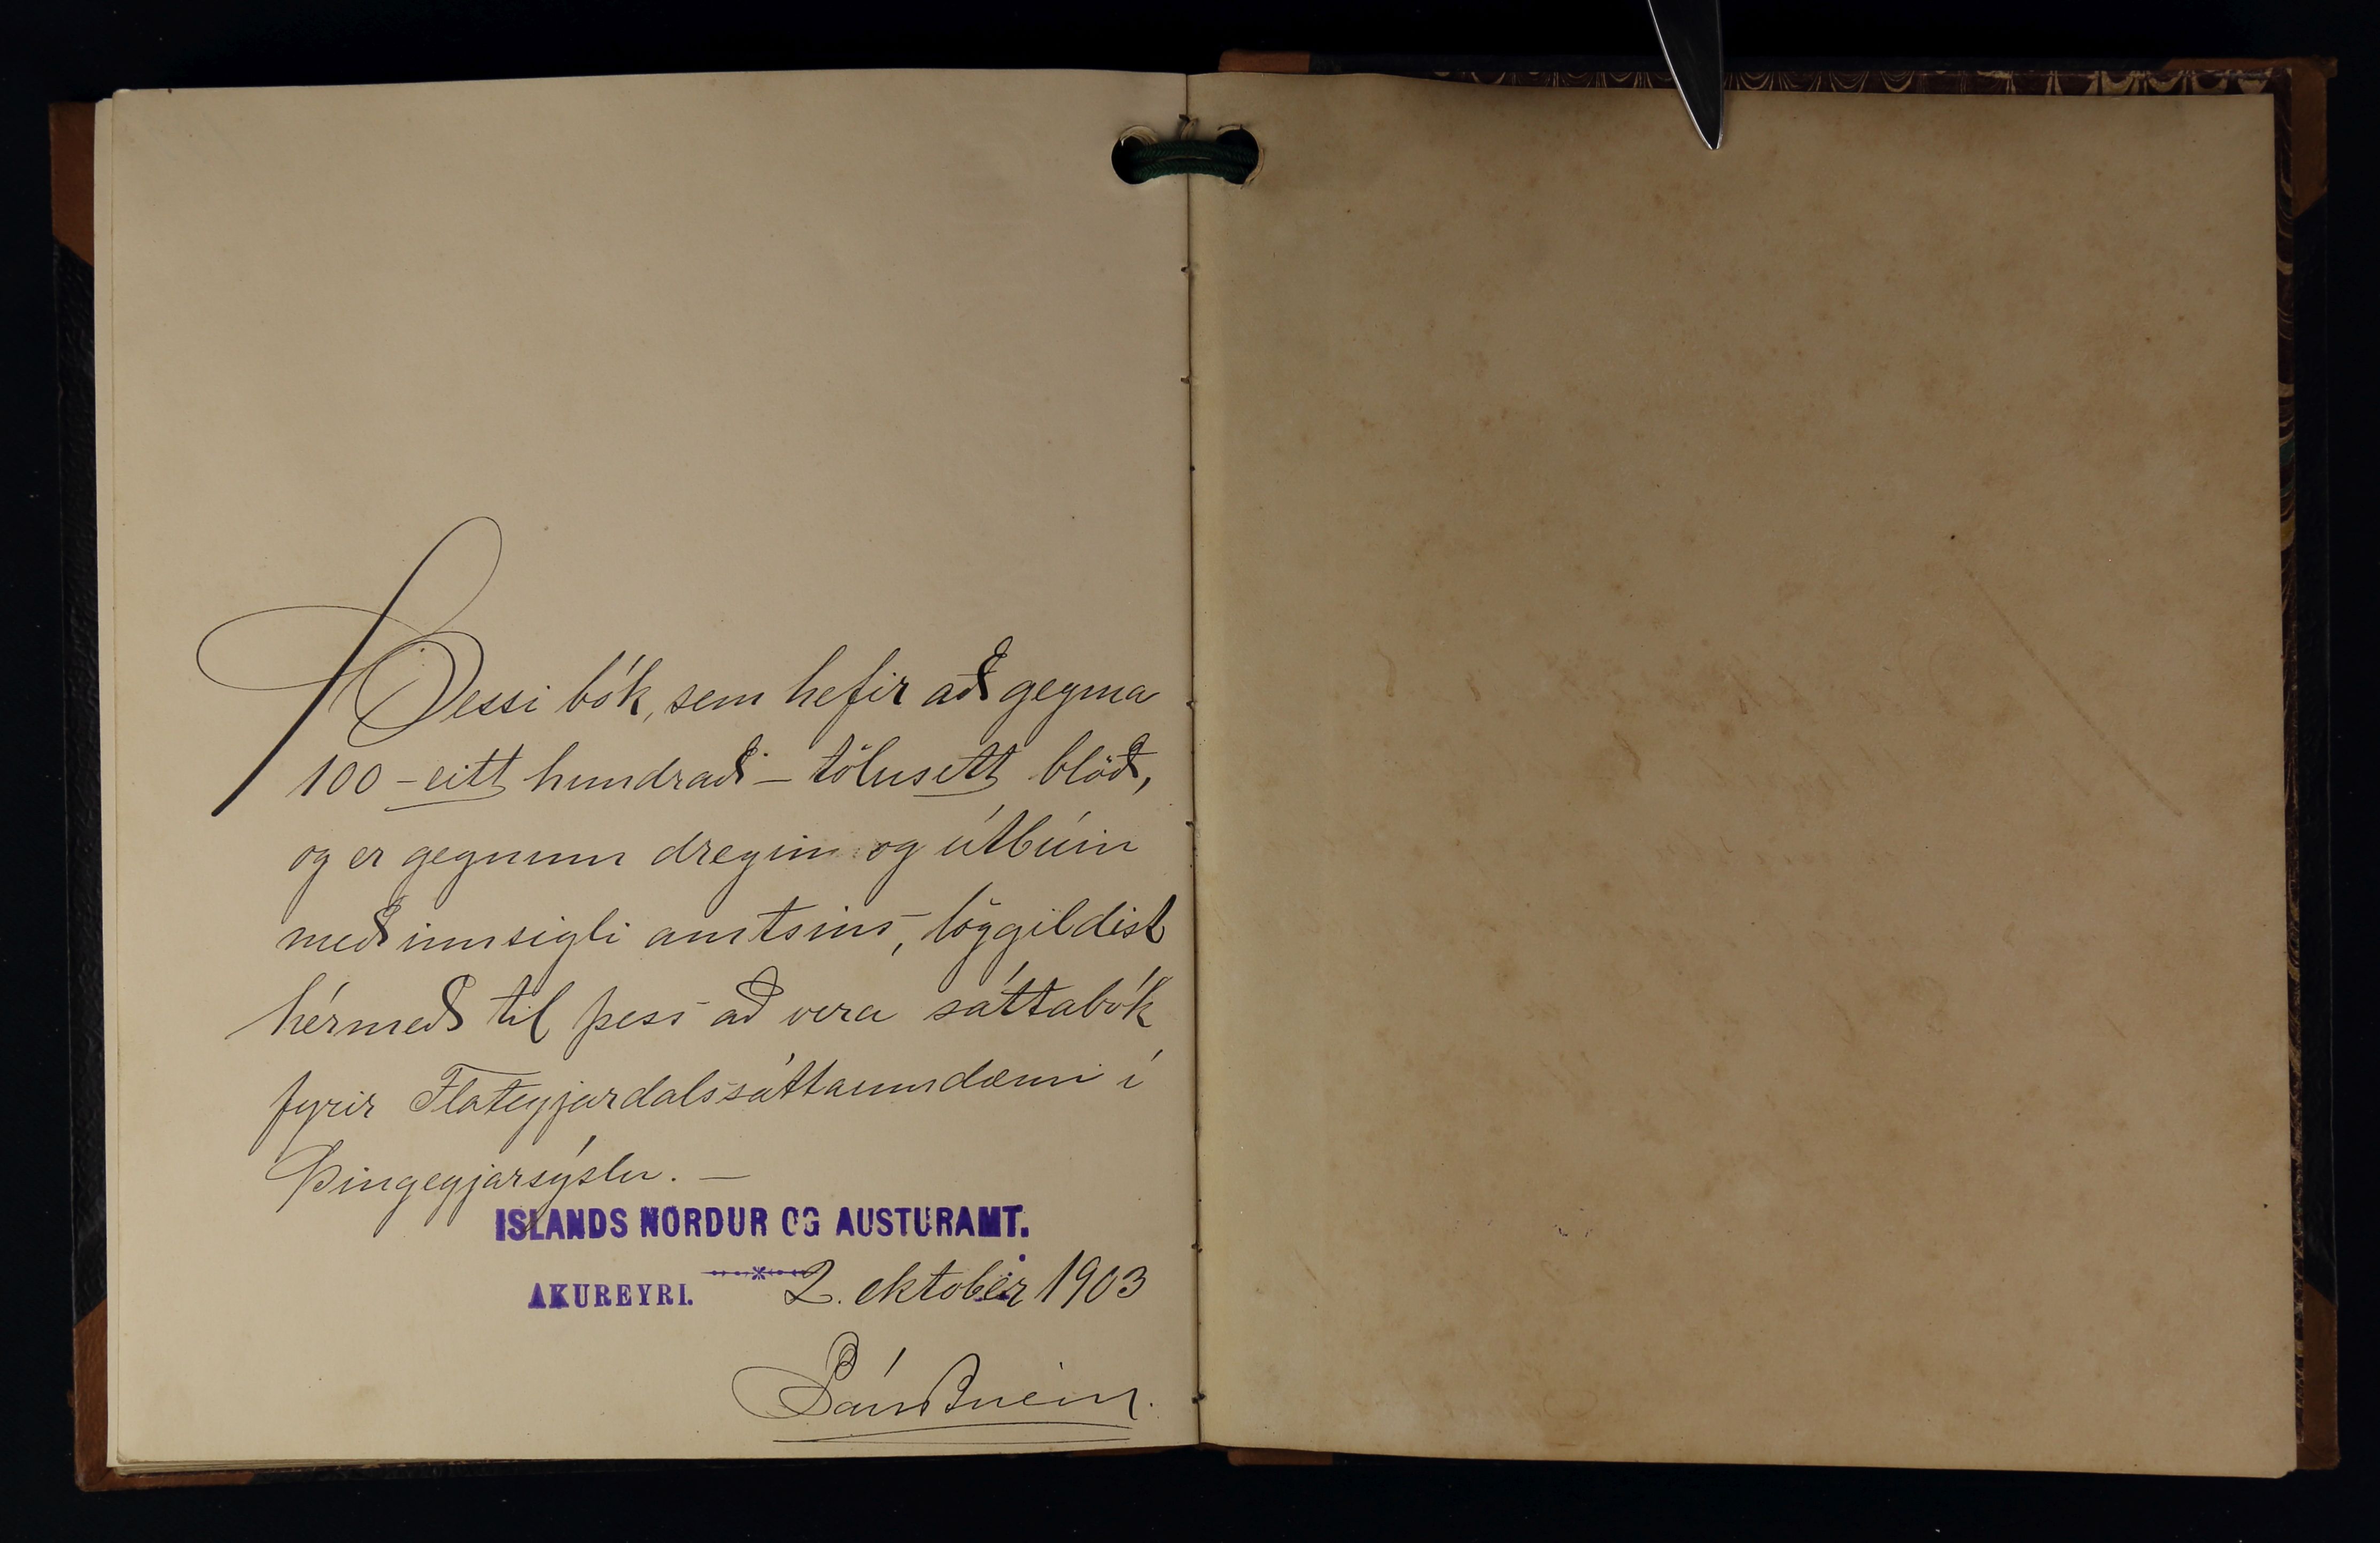 Þessi bók, sem hefir að geyma
100 - eitt hundrað - tölusett blöð,
og er gegnum dregin og útbúin
með innsigli amtsins, löggildist
hérmeð til þess að vera sáttabók
fyrir Flateyjardalssáttaumdæmi í
Þingeyjarsýslu. —
ISLANDS NORDUR OG AUSTURAMT.
AKUREYRI. 2. október 1903
Páll Briem.